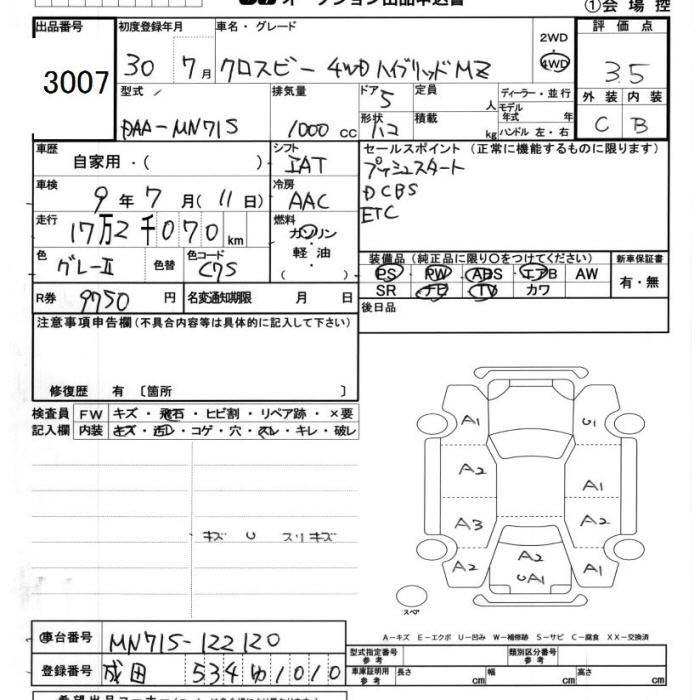 オークション出品申込書
①会場控
出品番号 初度登録年月 車名・グレード 評価点
3007 30 7月 クロスビー 4WD ハイブリッドMZ 2WD 4WD 3.5
型式 排気量 ドア 定員 ディーラー・並行 外装 内装
DAA-MN71S 1000cc 5 人 モデル年式 年 C B
形状 ハコ 積載 kg ハンドル 左・右
車歴 シフト セールスポイント (正常に機能するものに限ります)
自家用・( ) IAT プッシュスタート
車検 冷房 DCBS
9年7月(11日) AAC ETC
走行 燃料
17万2千070km ガソリン・軽油・( )
色 色替 色コード 装備品(純正品に限り〇をつけてください) 新車保証書
グレーII C7S PS PW ABS エアB AW 有・無
SR ナビ TV カワ
R券 9750円 名変通知期限 月 日 後日品
注意事項申告欄(不具合内容等は具体的に記入して下さい)
修復歴 有〔箇所 〕
検査員 FW キズ・飛石・ヒビ割・リペア跡・×要
記入欄 内装 キズ・汚レ・コゲ・穴・スレ・キレ・破レ
A1 U1
A2 A1
A3 A2
A2 A2 UA1 A1
キズ U スリキズ
スペア
A-キズ E-エクボ U-凹み W-補修跡 S-サビ C-腐食 XX-交換済
車台番号 MN71S-122120
型式指定番号 参考 類別区分番号 参考
登録番号 成田 534 ゆ 1010
車庫証明用 参考 長さ cm 幅 cm 高さ cm